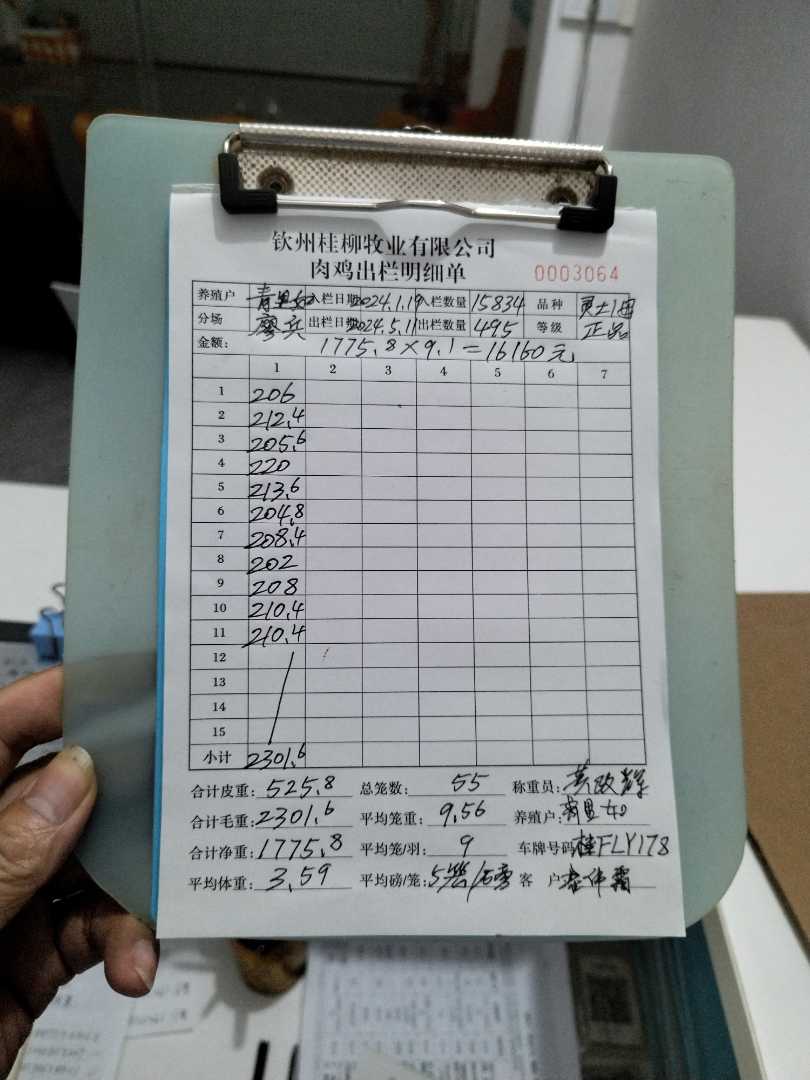 钦州桂柳牧业有限公司
肉鸡出栏明细单 0003064
养殖户 青 入栏日期 2024.1.19 入栏数量 15834 品种
分场 廖兵 出栏日期 2024.5.11 出栏数量 495 等级 正品
金额: 1775.8×9.1=16160元
1 2 3 4 5 6 7
1 206
2 212.4
3 205.6
4 220
5 213.6
6 204.8
7 208.4
8 202
9 208
10 210.4
11 210.4
12
13
14
15
小计 2301.6
合计皮重: 525.8 总笼数: 55 称重员: 黄政
合计毛重: 2301.6 平均笼重: 9.56 养殖户:
合计净重: 1775.8 平均笼/羽: 9 车牌号码 桂FLY178
平均体重: 3.59 平均磅/笼: 5 客 户 伟霜